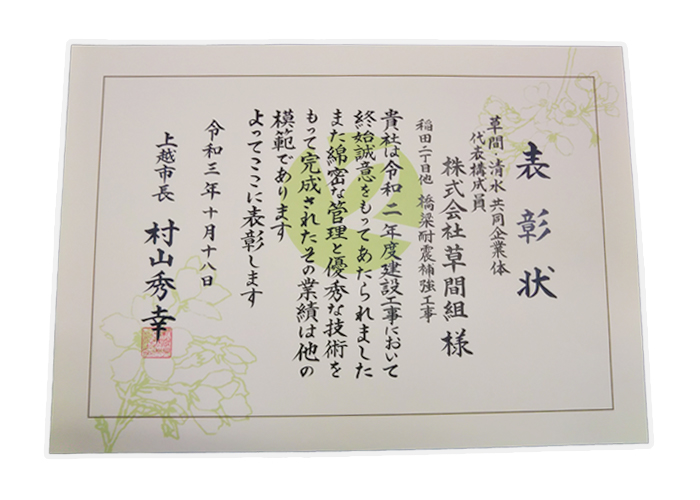 表彰状
草間・清水 共同企業体
代表構成員
株式会社草間組 様
稲田二丁目他 橋梁耐震補強工事
貴社は令和二年度建設工事において
終始誠意をもってあたられました
また綿密な管理と優秀な技術を
もって完成されたその業績は他の
模範であります
よってここに表彰します
令和三年十月十八日
上越市長 村山秀幸